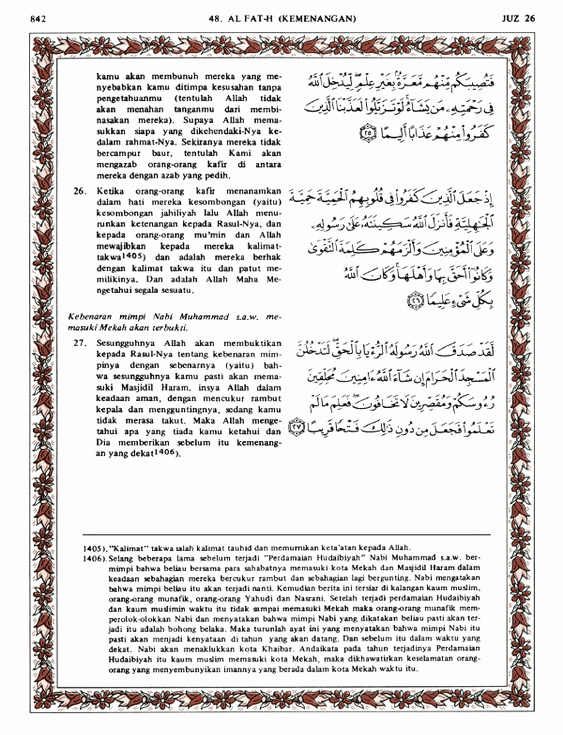 842
48. AL FAT-H (KEMENANGAN)
JUZ 26
kamu akan membunuh mereka yang me-
nyebabkan kamu ditimpa kesusahan tanpa
pengetahuanmu (tentulah Allah tidak
akan menahan tanganmu dari membi-
nasakan mereka). Supaya Allah mema-
sukkan siapa yang dikehendaki-Nya ke-
dalam rahmat-Nya. Sekiranya mereka tidak
bercampur baur, tentulah Kami akan
mengazab orang-orang kafir di antara
mereka dengan azab yang pedih.
فَتُصِيبَكُم مِّنْهُم مَّعَرَّةٌۢ بِغَيْرِ عِلْمٍ لِّيُدْخِلَ ٱللَّهُ
فِى رَحْمَتِهِۦ مَن يَشَآءُ لَوْ تَزَيَّلُوا۟ لَعَذَّبْنَا ٱلَّذِينَ
كَفَرُوا۟ مِنْهُمْ عَذَابًا أَلِيمًا ٢٥
26. Ketika orang-orang kafir menanamkan
dalam hati mereka kesombongan (yaitu)
kesombongan jahiliyah lalu Allah menu-
runkan ketenangan kepada Rasul-Nya, dan
kepada orang-orang mu'min dan Allah
mewajibkan kepada mereka kalimat-
takwa1405) dan adalah mereka berhak
dengan kalimat takwa itu dan patut me-
milikinya. Dan adalah Allah Maha Me-
ngetahui segala sesuatu.
إِذْ جَعَلَ ٱلَّذِينَ كَفَرُوا۟ فِى قُلُوبِهِمُ ٱلْحَمِيَّةَ حَمِيَّةَ
ٱلْجَٰهِلِيَّةِ فَأَنزَلَ ٱللَّهُ سَكِينَتَهُۥ عَلَىٰ رَسُولِهِۦ
وَعَلَى ٱلْمُؤْمِنِينَ وَأَلْزَمَهُمْ كَلِمَةَ ٱلتَّقْوَىٰ
وَكَانُوٓا۟ أَحَقَّ بِهَا وَأَهْلَهَا وَكَانَ ٱللَّهُ
بِكُلِّ شَىْءٍ عَلِيمًا ٢٦
Kebenaran mimpi Nabi Muhammad s.a.w. me-
masuki Mekah akan terbukti.
27. Sesungguhnya Allah akan membuktikan
kepada Rasul-Nya tentang kebenaran mim-
pinya dengan sebenarnya (yaitu) bah-
wa sesungguhnya kamu pasti akan mema-
suki Masjidil Haram, insya Allah dalam
keadaan aman, dengan mencukur rambut
kepala dan mengguntingnya, sedang kamu
tidak merasa takut. Maka Allah menge-
tahui apa yang tiada kamu ketahui dan
Dia memberikan sebelum itu kemenang-
an yang dekat1406).
لَّقَدْ صَدَقَ ٱللَّهُ رَسُولَهُ ٱلرُّءْيَا بِٱلْحَقِّ لَتَدْخُلُنَّ
ٱلْمَسْجِدَ ٱلْحَرَامَ إِن شَآءَ ٱللَّهُ ءَامِنِينَ مُحَلِّقِينَ
رُءُوسَكُمْ وَمُقَصِّرِينَ لَا تَخَافُونَ فَعَلِمَ مَا لَمْ
تَعْلَمُوا۟ فَجَعَلَ مِن دُونِ ذَٰلِكَ فَتْحًا قَرِيبًا ٢٧
1405). "Kalimat" takwa ialah kalimat tauhid dan memurnikan keta'atan kepada Allah.
1406). Selang beberapa lama sebelum terjadi "Perdamaian Hudaibiyah" Nabi Muhammad s.a.w. ber-
mimpi bahwa beliau bersama para sahabatnya memasuki kota Mekah dan Masjidil Haram dalam
keadaan sebahagian mereka bercukur rambut dan sebahagian lagi bergunting. Nabi mengatakan
bahwa mimpi beliau itu akan terjadi nanti. Kemudian berita ini tersiar di kalangan kaum muslim,
orang-orang munafik, orang-orang Yahudi dan Nasrani. Setelah terjadi perdamaian Hudaibiyah
dan kaum muslimin waktu itu tidak sampai memasuki Mekah maka orang-orang munafik mem-
perolok-olokkan Nabi dan menyatakan bahwa mimpi Nabi yang dikatakan beliau pasti akan ter-
jadi itu adalah bohong belaka. Maka turunlah ayat ini yang menyatakan bahwa mimpi Nabi itu
pasti akan menjadi kenyataan di tahun yang akan datang. Dan sebelum itu dalam waktu yang
dekat. Nabi akan menaklukkan kota Khaibar. Andaikata pada tahun terjadinya Perdamaian
Hudaibiyah itu kaum muslim memasuki kota Mekah, maka dikhawatirkan keselamatan orang-
orang yang menyembunyikan imannya yang berada dalam kota Mekah waktu itu.